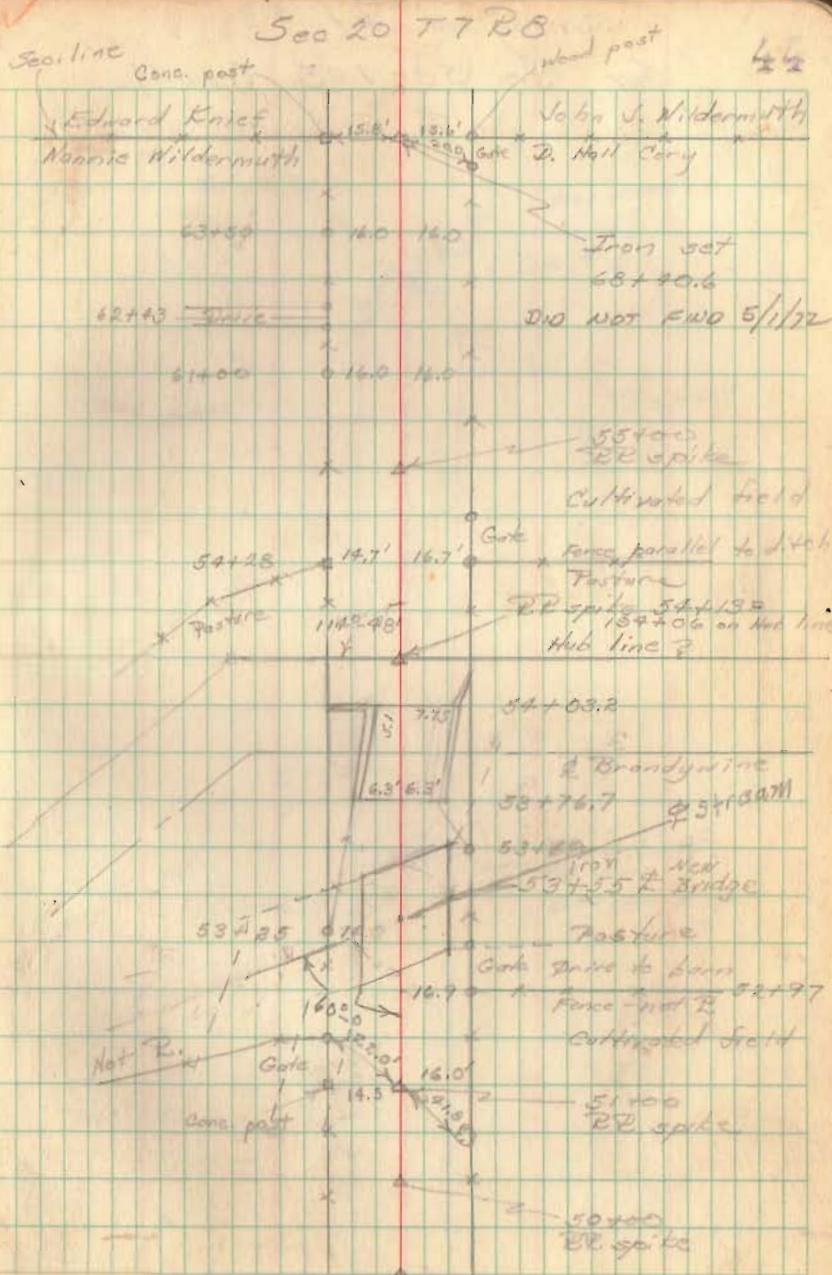 Sec 20 T7 R8
44
Sec. line
Conc. post
Wood post
Edward Knief
15.8' 15.6'
John J. Wildermuth
Nannie Wildermuth
Gate D. Hall Cory
63+54 16.0 16.0
Iron set
68+40.6
62+43 Drive
DID NOT FIND 5/1/72
61+00 16.0 16.0
55+00
RR spike
Cultivated field
Gate
54+28 14.7' 16.7' Fence parallel to ditch
Pasture
Pasture
RR spike 54+13
54+06 on Hub line
114°-48'
Hub line ?
54+03.2
5.1 7.75
Brandywine
6.3' 6.3'
53+76.7
℄ Stream
Iron
New
53+55 ℄ Bridge
53+25
Pasture
Gate Drive to barn
16.9 52+97
Fence - not ⅊
160°-0
Cultivated field
Not ⅊
22.0'
Gate
16.0'
14.5
21.8
51+00
RR spike
Conc. post
50+00
RR spike